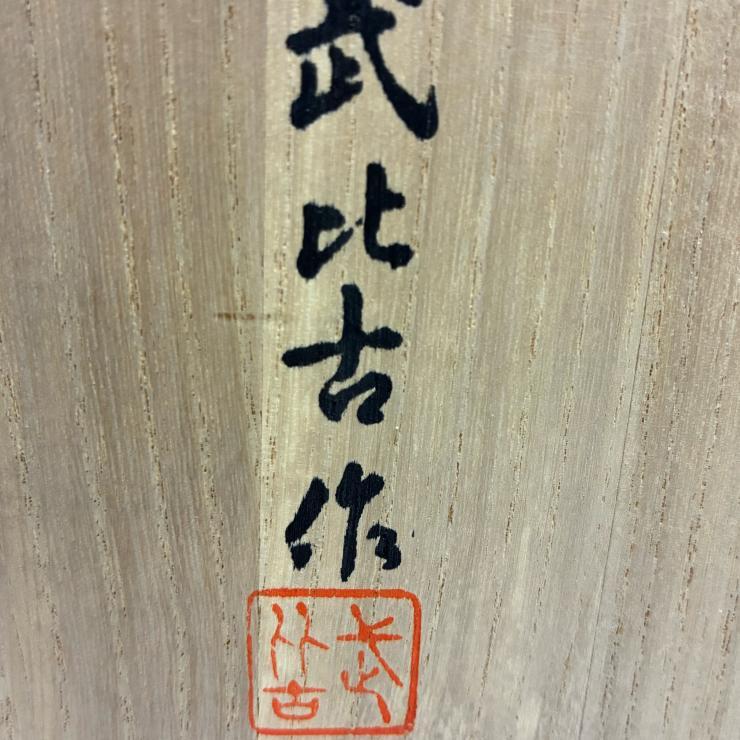 武比古作
武比古